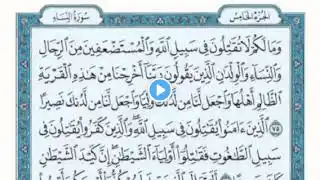 الجزء الخامس
سورة النساء
وَمَا لَكُمْ لَا تُقَاتِلُونَ فِي سَبِيلِ اللَّهِ وَالْمُسْتَضْعَفِينَ مِنَ الرِّجَالِ
وَالنِّسَاءِ وَالْوِلْدَانِ الَّذِينَ يَقُولُونَ رَبَّنَا أَخْرِجْنَا مِنْ هَٰذِهِ الْقَرْيَةِ
الظَّالِمِ أَهْلُهَا وَاجْعَل لَّنَا مِن لَّدُنكَ وَلِيًّا وَاجْعَل لَّنَا مِن لَّدُنكَ نَصِيرًا
٧٥ الَّذِينَ آمَنُوا يُقَاتِلُونَ فِي سَبِيلِ اللَّهِ وَالَّذِينَ كَفَرُوا يُقَاتِلُونَ فِي
سَبِيلِ الطَّاغُوتِ فَقَاتِلُوا أَوْلِيَاءَ الشَّيْطَانِ إِنَّ كَيْدَ الشَّيْطَانِ